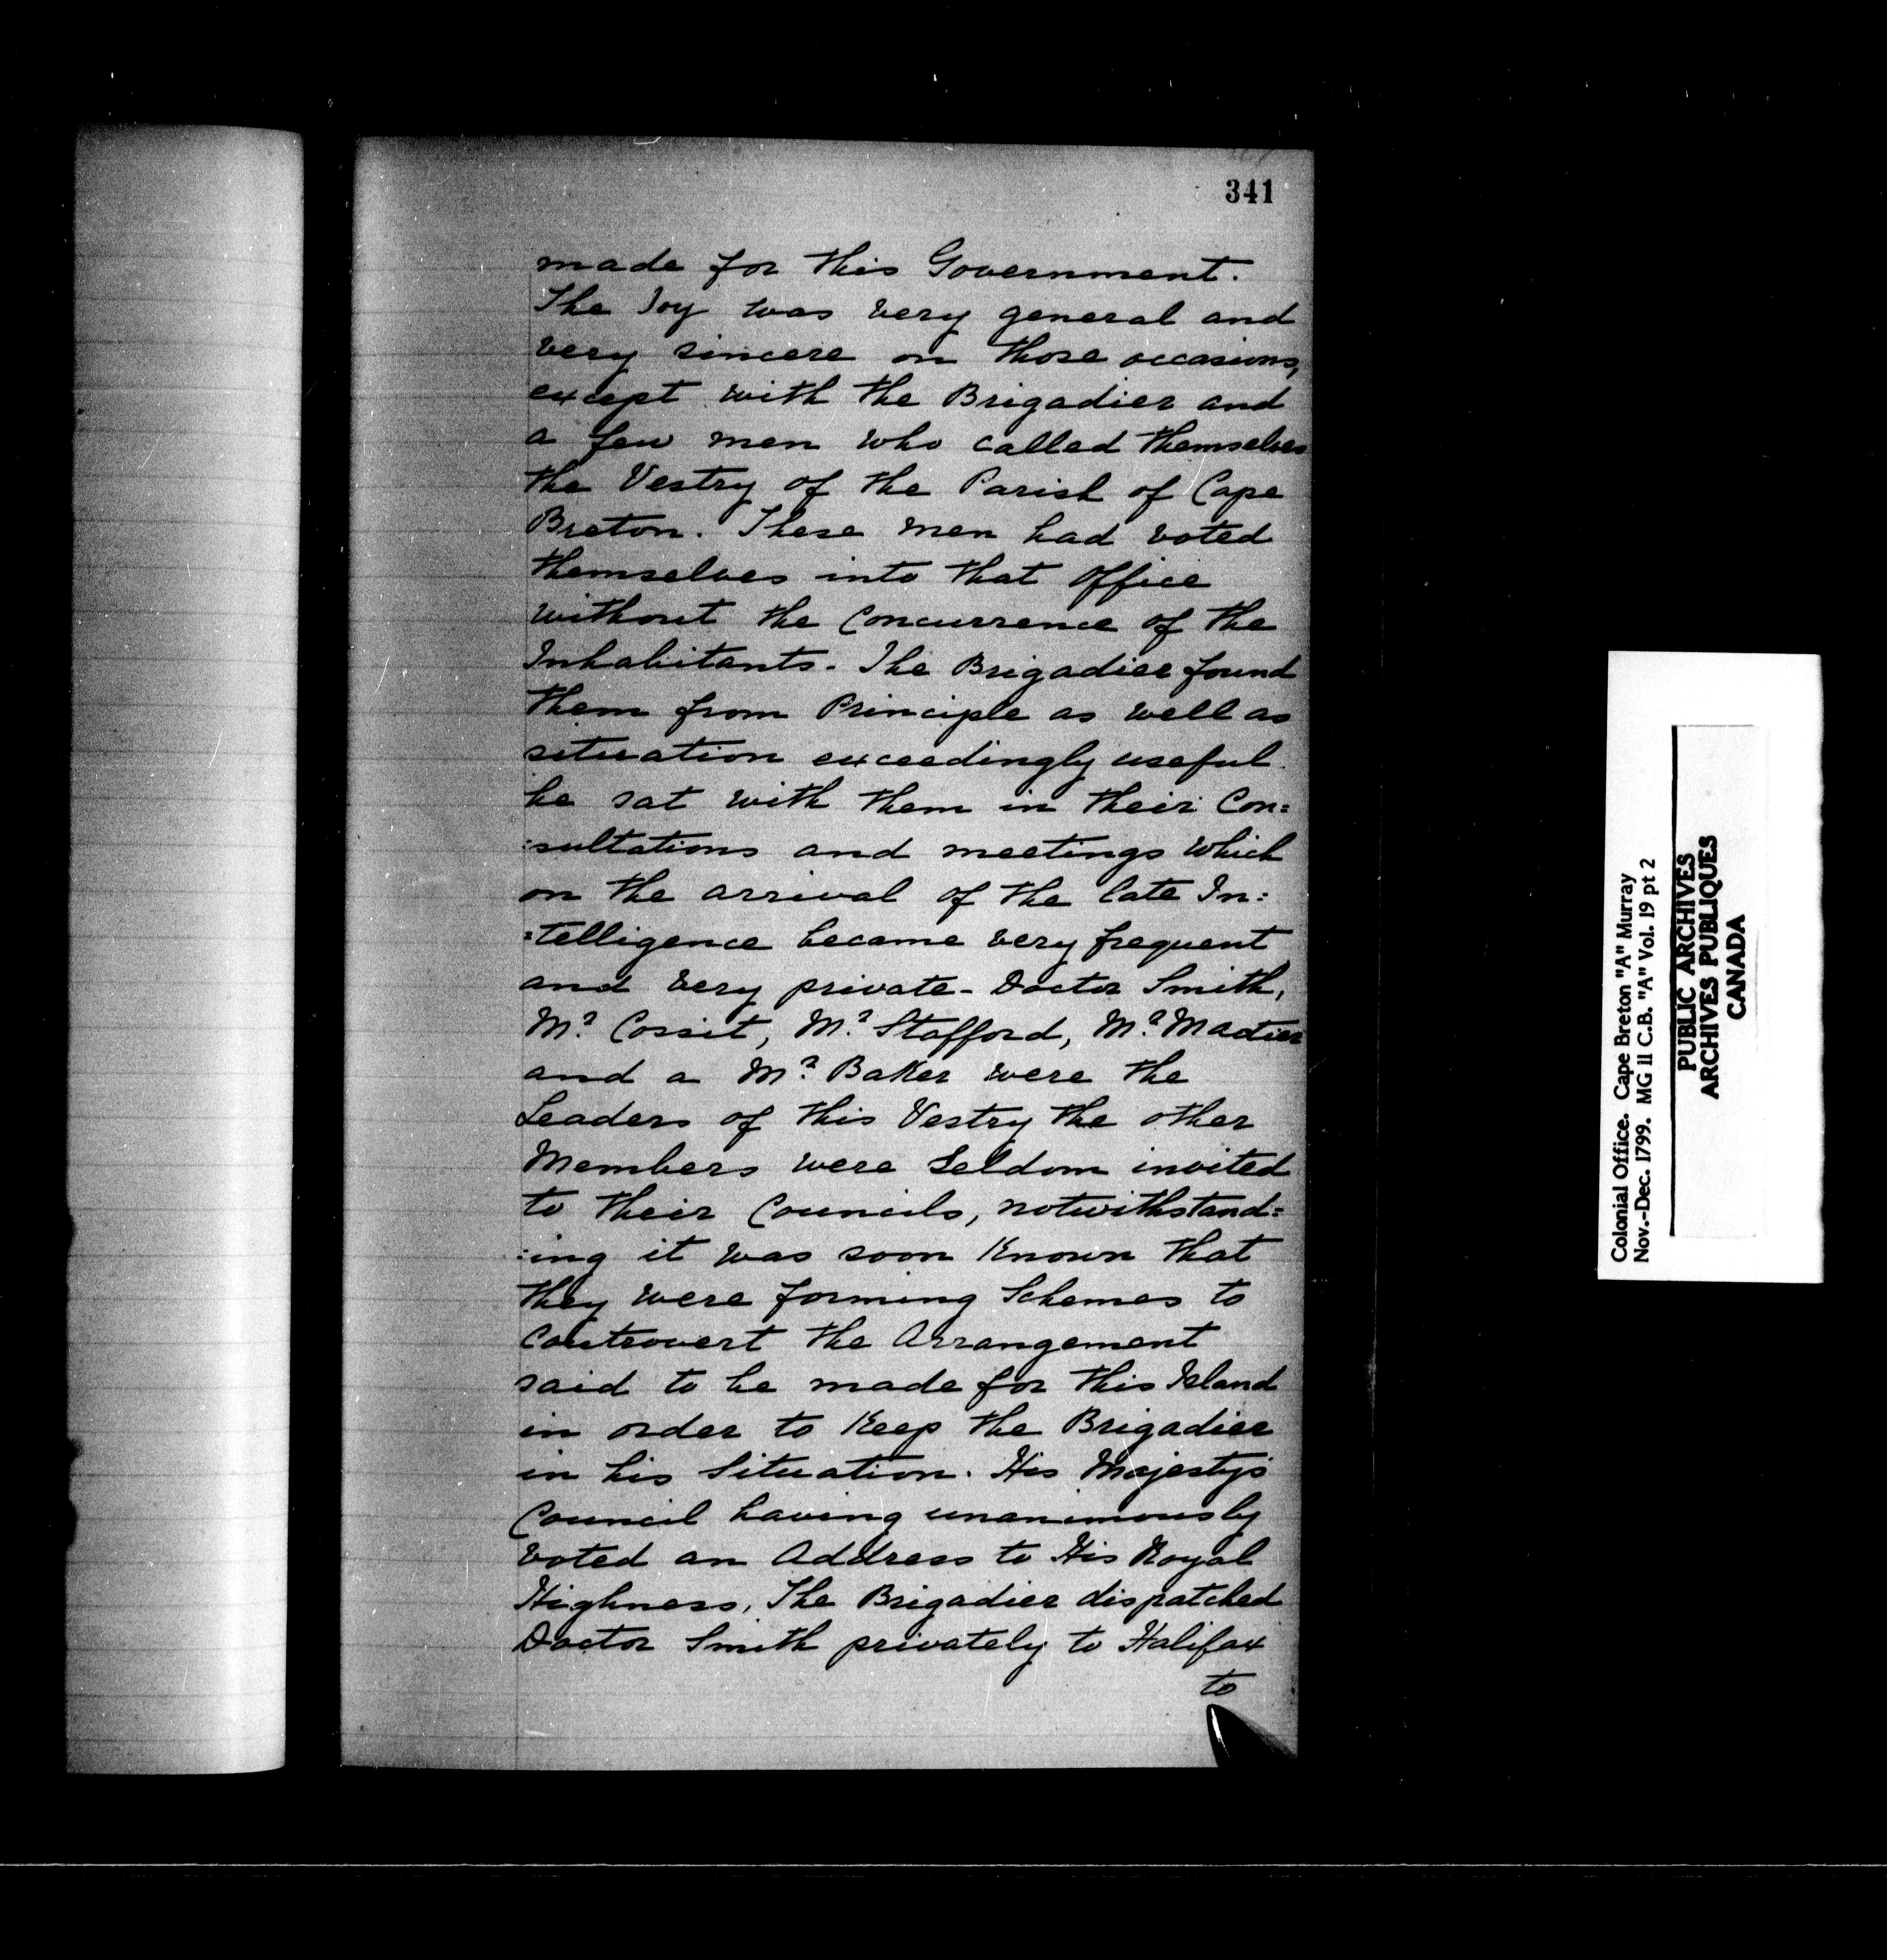 341
made for this Government.
The Joy was very general and
very sincere on those occasions,
except with the Brigadier and
a few men who called themselves
the Vestry of the Parish of Cape
Breton. These men had voted
themselves into that office
without the Concurrence of the
Inhabitants. The Brigadier found
them from Principle as well as
situation exceedingly useful
he sat with them in their Con:
:sultations and meetings which
on the arrival of the late In:
:telligence became very frequent
and very private - Doctor Smith,
Mr. Cossit, Mr. Stafford, Mr.
and a Mr. Baker were the
Leaders of this Vestry the other
Members were Seldom invited
to their Councils, notwithstand:
:ing it was soon Known that
they were forming Schemes to
Controvert the Arrangement
said to be made for this Island
in order to Keep the Brigadier
in his Situation. His Majesty's
Council having unanimously
voted an Address to His Royal
Highness, The Brigadier dispatched
Doctor Smith privately to Halifax
to
Colonial Office. Cape Breton "A" Murray
Nov.-Dec. 1799. MG 11 C.B. "A" Vol. 19 pt 2
PUBLIC ARCHIVES
ARCHIVES PUBLIQUES
CANADA